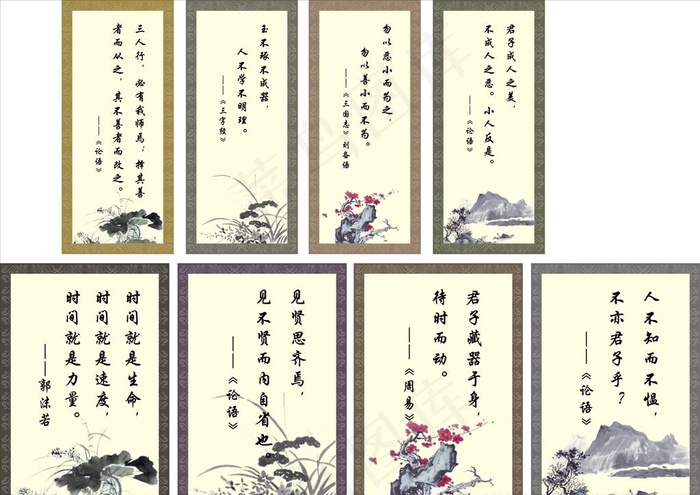 三人行，必有我师焉；择其善
者而从之，其不善者而改之。
——《论语》
玉不琢不成器，
人不学不明理。
——《三字经》
勿以恶小而为之，
勿以善小而不为。
——《三国志》刘备语
君子成人之美，
不成人之恶。小人反是。
——《论语》
时间就是生命，
时间就是速度，
时间就是力量。
——郭沫若
见贤思齐焉，
见不贤而内自省也。
——《论语》
君子藏器于身，
待时而动。
——《周易》
人不知而不愠，
不亦君子乎？
——《论语》